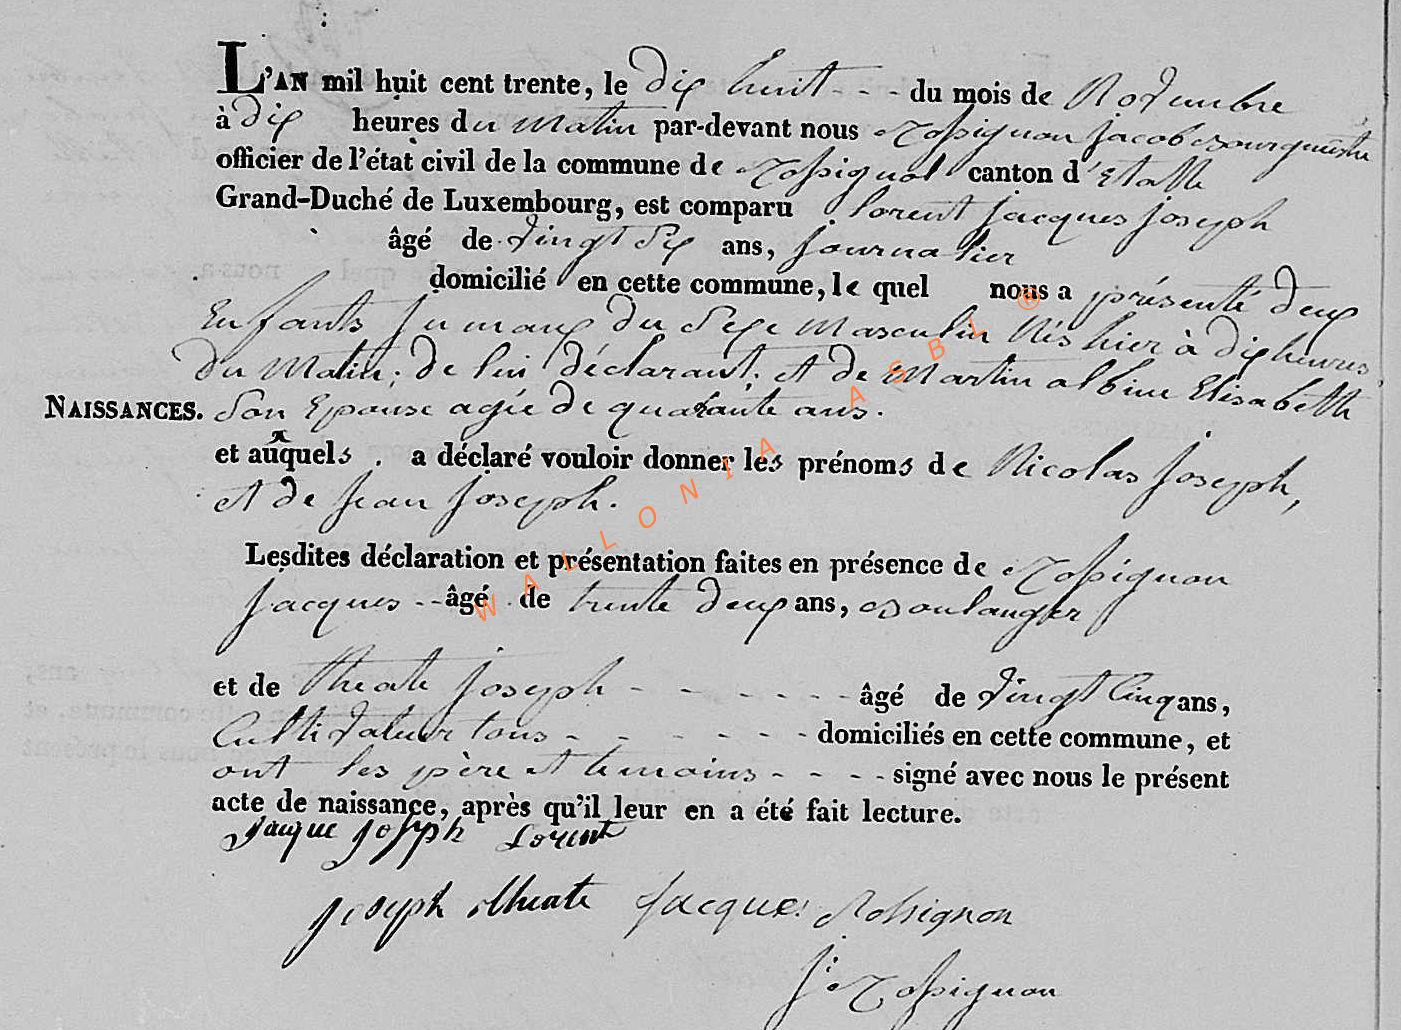 L'AN mil huit cent trente, le dix huit - - - du mois de Novembre
à dix heures du Matin par-devant nous Rossignon Jacob Bourguestre
officier de l'état civil de la commune de Rossignol canton d'Etalle
Grand-Duché de Luxembourg, est comparu Lorent Jacques Joseph
âgé de vingt six ans, journalier
domicilié en cette commune, le quel nous a présenté deux
Enfants Jumaux du Sexe Masculin Nés hier à dix heures
du Matin; de lui déclarant; et de Martin albine Elisabeth
NAISSANCES. Son Epouse agée de quarante ans.
et auxquels a déclaré vouloir donner les prénoms de Nicolas Joseph,
et de Jean Joseph.
Lesdites déclaration et présentation faites en présence de Rossignon
Jacques - - âgé de trente deux ans, Boulanger
et de Theate Joseph - - - - - - - âgé de vingt Cinq ans,
Cultivateur tous - - - - - - - domiciliés en cette commune, et
ont les père et temoins - - - - signé avec nous le présent
acte de naissance, après qu'il leur en a été fait lecture.
Jacque Joseph Lorent
Joseph theate Jacques Rossignon
J. Rossignon
WALLONIA ASBL ®